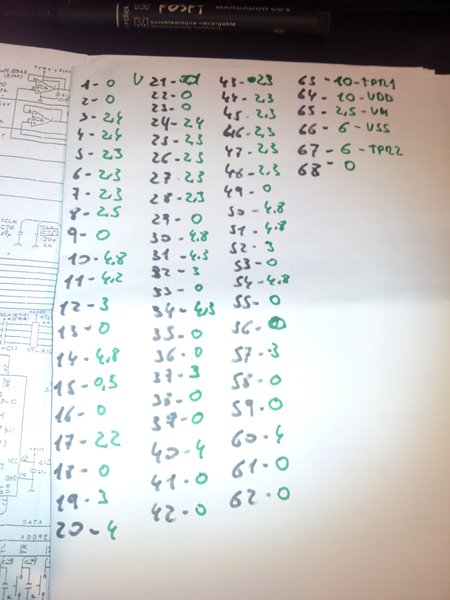 MARCADOR
1-0
2-0
3-2,4
4-2,4
5-2,3
6-2,3
7-2,3
8-2,5
9-0
10-4,8
11-4,2
12-3
13-0
14-4,8
15-0,5
16-0
17-2,2
18-0
19-3
20-4
22-0
23-0
24-2,4
25-2,3
26-2,3
27-2,3
28-2,3
29-0
30-4,8
31-4,3
32-3
33-0
34-4,3
35-0
36-0
37-3
38-0
39-0
40-4
41-0
42-0
43-2,3
44-2,3
45-2,3
46-2,3
47-2,3
48-2,3
49-0
50-4,8
51-4,8
52-3
53-0
54-4,8
55-0
56-0
57-3
58-0
59-0
60-4
61-0
62-0
63-10-TPR1
64-10-VDD
65-2,5-VM
66-6-VSS
67-6-TPR2
68-0
VCC
GND
DATA